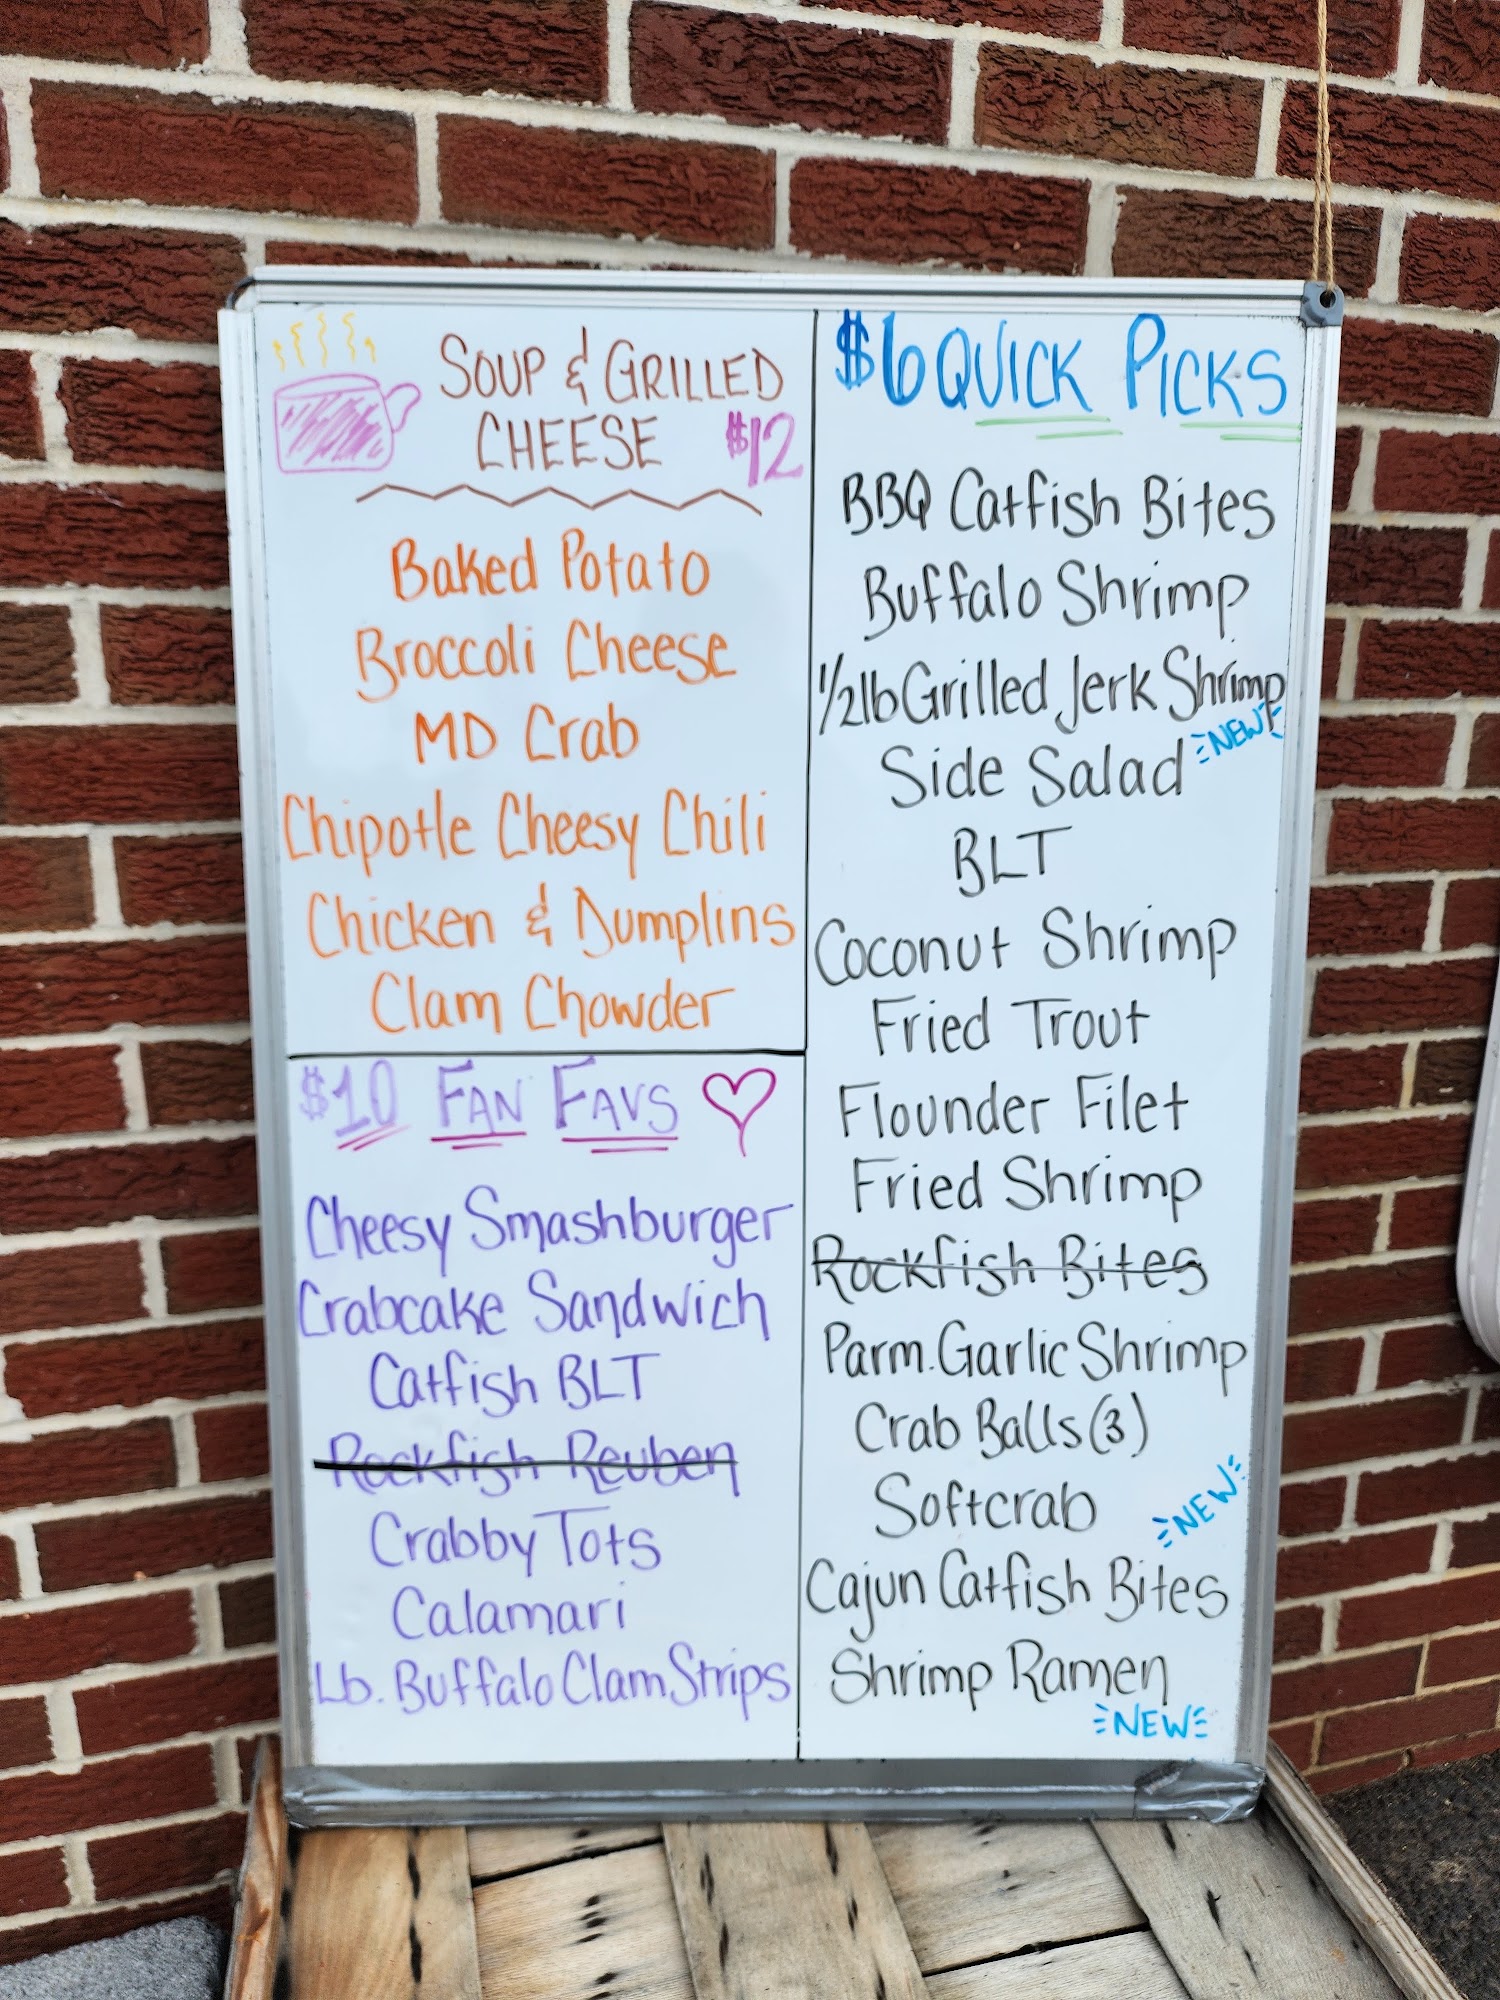 SOUP & GRILLED
CHEESE $12
Baked Potato
Broccoli Cheese
MD Crab
Chipotle Cheesy Chili
Chicken & Dumplins
Clam Chowder
$10 FAN FAVS
Cheesy Smashburger
Crabcake Sandwich
Catfish BLT
Rockfish Reuben
Crabby Tots
Calamari
Lb. Buffalo Clam Strips
$6 QUICK PICKS
BBQ Catfish Bites
Buffalo Shrimp
1/2lb Grilled Jerk Shrimp
NEW
Side Salad
BLT
Coconut Shrimp
Fried Trout
Flounder Filet
Fried Shrimp
Rockfish Bites
Parm. Garlic Shrimp
Crab Balls (3)
Softcrab
NEW
Cajun Catfish Bites
Shrimp Ramen
NEW